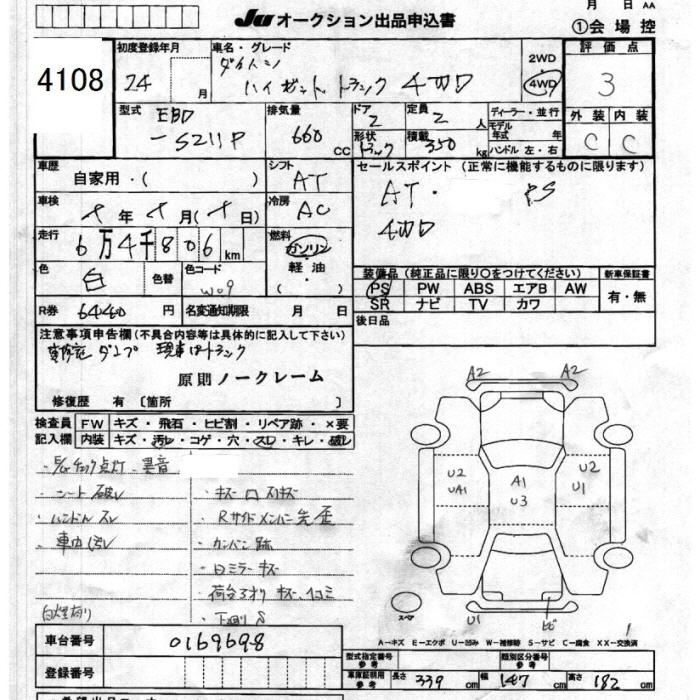 月 日 AA
JU オークション出品申込書
①会場控
4108
初度登録年月
24 月
車名・グレード
ダイハツ
ハイゼット トラック 4WD
2WD
4WD
評価点
3
型式
EBD
-S211P
排気量
660 CC
ドア
2
定員
2 人
形状
トラック
積載
350 kg
ディーラー・並行
モデル年式 年
ハンドル 左・右
外装 内装
C C
車歴
自家用・( )
シフト
AT
車検
年 月( 日)
冷房
AC
セールスポイント (正常に機能するものに限ります)
AT・ PS
4WD
走行
6万4千806km
燃料
ガソリン
軽油
・( )
色
白
色替
色コード
W09
装備品 (純正品に限り○をつけてください)
PS PW ABS エアB AW
SR ナビ TV カワ
新車保証書
有・無
R券 6400円
名変通知期限 月 日
後日品
注意事項申告欄 (不具合内容等は具体的に記入して下さい)
ダンプ 現車はトラック
原則ノークレーム
修復歴 有 [箇所 ]
検査員記入欄
FW キズ・飛石・ヒビ割・リペア跡・×要
内装 キズ・汚レ・コゲ・穴・スレ・キレ・破レ
チェック点灯・異音
・シート破レ
・ハンドルスレ
・車内汚レ
・Rサイドメンバー先歪
・カンバン跡
・ミラーキズ
・荷台アオリ キズ、凹コミ
・下廻りS
白煙有り
A2 A2
U2
UA1
A1
U3
U2
U1
スペア
U1 ヒビ
A-キズ E-エクボ U-凹み W-補修跡 S-サビ C-腐食 XX-交換済
車台番号
0169698
登録番号
型式指定番号 参考
類別区分番号 参考
車庫証明用 参考
長さ 339cm 幅 147cm 高さ 182cm